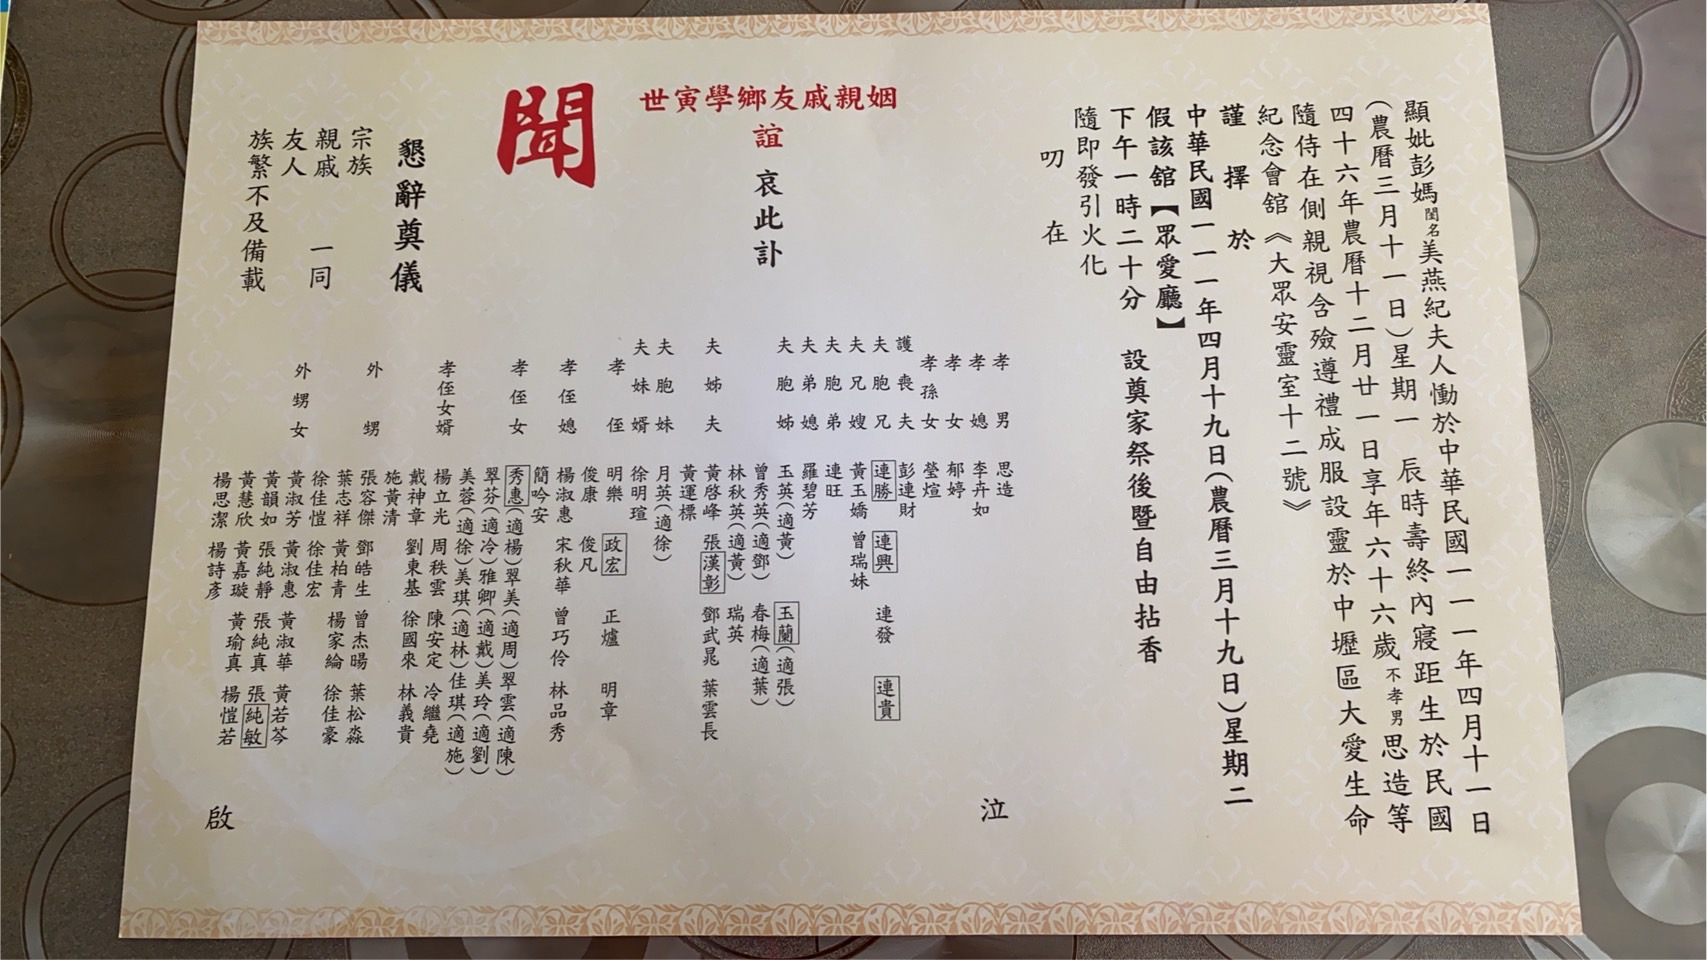 顯妣彭媽閨名美燕紀夫人慟於中華民國一一一年四月十一日
(農曆三月十一日)星期一 辰時壽終內寢距生於民國
四十六年農曆十二月廿一日享年六十六歲不孝男思造等
隨侍在側親視含殮遵禮成服設靈於中壢區大愛生命
紀念會舘《大眾安靈室十二號》
謹擇於
中華民國一一一年四月十九日(農曆三月十九日)星期二
假該舘【眾愛廳】
下午一時二十分 設奠家祭後暨自由拈香
隨即發引火化
叨在
姻親戚友鄉學寅世
誼
哀此訃
聞
孝男 思造
孝媳 李卉如
孝女 郁婷
孝孫女 瑩煊
護喪夫 彭連財
夫胞兄 連勝 連興 連發 連貴
夫兄嫂 黃玉嬌 曾瑞妹
夫胞弟 連旺
夫弟媳 羅碧芳
夫胞姊 玉英(適黃) 玉蘭(適張)
曾秀英(適鄧) 春梅(適葉)
林秋英(適黃) 瑞英
夫姊夫 黃啓峰 張漢彰 鄧武晃 葉雲長
黃運標
夫胞妹 月英(適徐)
夫妹婿 徐明瑄
孝侄 明樂 政宏 正爐 明章
俊康 俊凡
孝侄媳 楊淑惠 宋秋華 曾巧伶 林品秀
簡吟安
孝侄女 秀惠(適楊)翠美(適周)翠雲(適陳)
翠芬(適冷)雅卿(適戴)美玲(適劉)
美蓉(適徐)美琪(適林)佳琪(適施)
孝侄女婿 楊立光 周秩雲 陳安定 冷繼堯
戴神章 劉東基 徐國來 林義貴
施黃清
外甥 張容傑 鄧皓生 曾杰暘 葉松淼
葉志祥 黃柏青 楊家綸 徐佳豪
徐佳愷 徐佳宏
外甥女 黃淑芳 黃淑惠 黃淑華 黃若芩
黃韻如 張純靜 張純真 張純敏
黃慧欣 黃嘉璇 黃瑜真 楊愷若
楊思潔 楊詩彥
泣
啟
懇辭奠儀
宗族
親戚 一同
友人
族繁不及備載